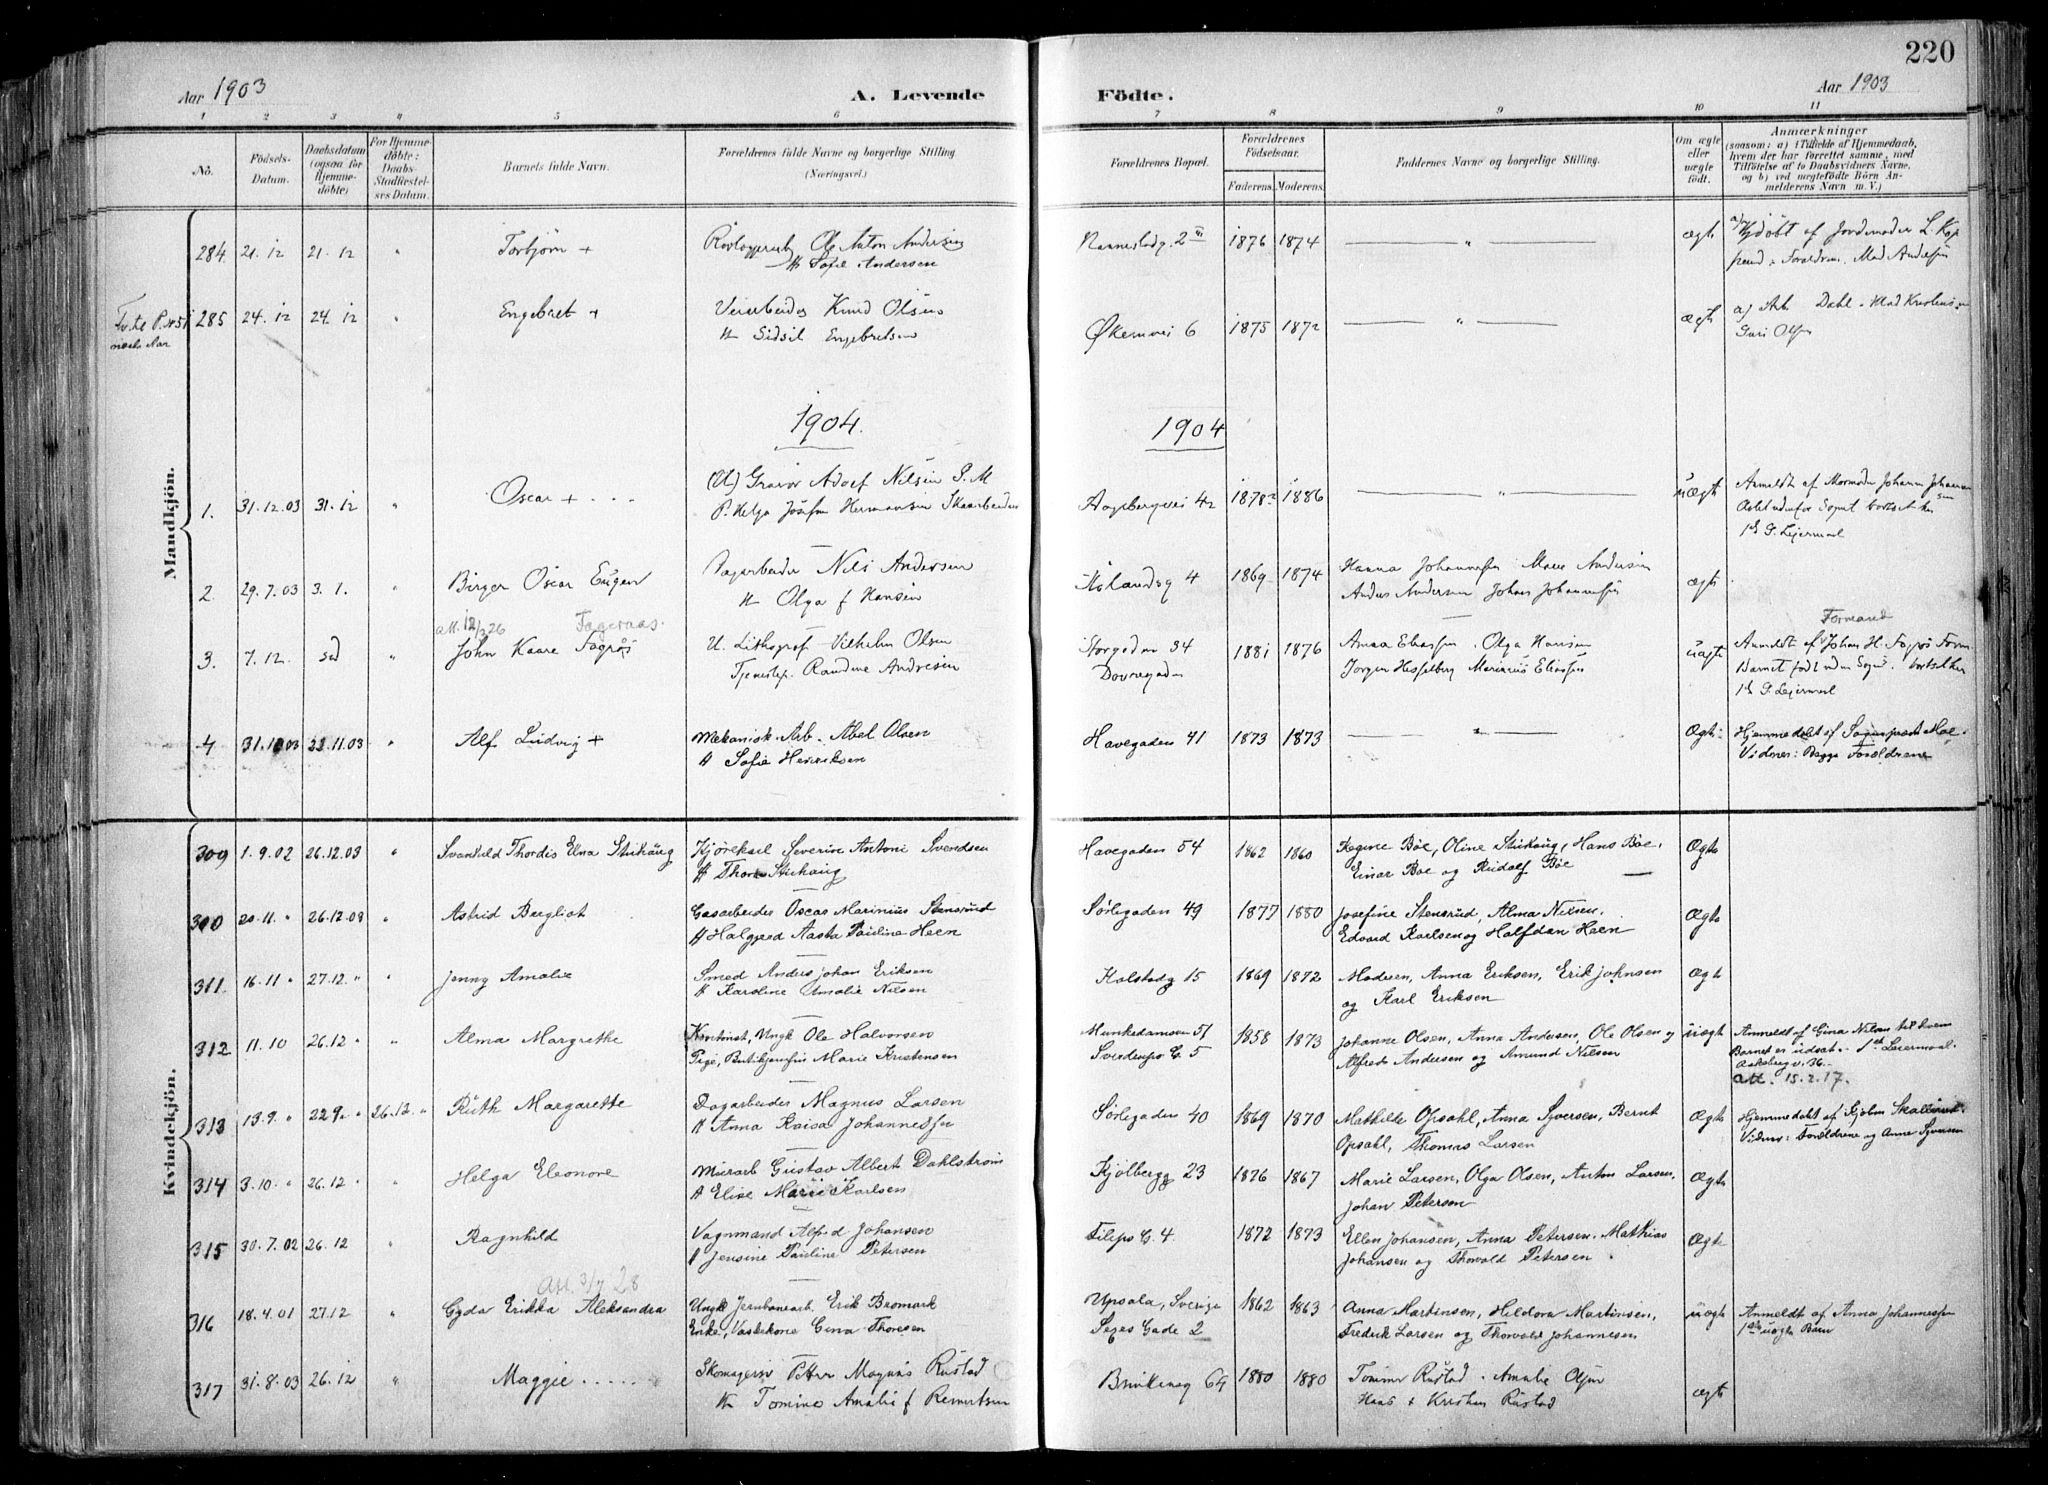 220
Aar 1903
A. Levende
Födte.
Aar 1903
1 2 3 4 5 6 7 8 9 10 11
No.
Födsels-
Datum.
Daabsdatum
(ogsaa for
Hjemme-
döbte)
For Hjemme-
döbte:
Daabs-
Stadfæstel-
ses Datum.
Barnets fulde Navn.
Forældrenes fulde Navne og borgerlige Stilling
(Næringsvei.)
Forældrenes Bopæl.
Forældrenes
Födselsaar.
Faderens. Moderens.
Faddernes Navne og borgerlige Stilling.
Om ægte
eller
uægte
födt.
Anmærkninger
(saasom: a) i Tilfælde af Hjemmedaab,
hvem der har forrettet samme, med
Tilföielse af to Daabsvidners Navne,
og b) ved uægtefödte Börn An-
melderens Navn m. V.)
Mandkjön.
284 21.12 21.12 " Torbjörn + Ole Anton Andersen
H Sofie Andersen
1876 1874 " ægte a) Hjdöbt af Jordemoder L.
næste Aar
285 24.12 24.12 " Engebret + Veiarbeider Knud Olsen
H Sidsil Engebretsen
Økernvei 6 1875 1872 " ægte a) Arb. Dahl
Guri Olsen
1904.
1904
1. 31.12.03 31.12 " Oscar + . . . (U) Gravör Adolf Nilsen P. M
P. Helga Josefine Hermansen
1886 " uægte Anmeldt af Mormoder Johanne Johannesen
1ste G. Leiermaal
2. 29.7.03 3.1. " Birger Oscar Eugen Dagarbeider Nils Andersen
H Olga f Hansen
4 1869 1874 Hanna Johannessen Marie Andersen
Anders Andersen Johan Johannessen
ægte
att. 12/3 26 Fageraas.
3. 7.12. sd " John Kaare Fagrås U. Lithograf Vilhelm Olsen
Tjenestep. Randine Andresen
Storgaden 34
Dovregaden
1881 1876 Anna Eliassen. Olga Hansen
Jørgen Hesselberg Marinius Eliassen
uægte Formand
Anmeldt af Johan H. Fagrås Form.
Barnet födt uden Sogn.
1ste G. Leiermaal
4 31.10.03 22.11.03 " Alf Ludvig + Mekanisk. Arb. Abel Olsen
H Sofie Henriksen
Havegaden 41 1873 1873 " Ægte: Hjemmedøbt af Sognepræst Moe.
Vidner: Begge Forældrene
Kvindekjön.
309 1.9.02 26.12.03 " Svanhild Thordis Elna Stikaug Kjøreksp. Severin Antoni Svendsen
H Thora Stikaug
Havegaden 54 1862 1860 Regine Bøe, Oline Stikaug, Hans Bøe.
Einar Bøe og Rudolf Bøe
Ægte
310 20.11. " 26.12.03 " Astrid Bergliot Gasarbeider Oscar Marinius Stensrud
H Halgjerd Aasta Pauline Heen
Sørligaden 49 1877 1880 Josefine Stensrud, Alma Nilsen.
Edvard Karlsen og Halfdan Haen
Ægte
311. 16.11 " 27.12. " " Jenny Amalie Smed Anders Johan Eriksen
H Karoline Amalie Nilsen
Kalstadg 15 1869 1872 Moderen, Anna Eriksen, Erik Johnsen
og Karl Eriksen
Ægte
312 11.10 26.12 " " Alma Margrethe Ungk Ole Halvorsen
Pige, Marie Kristensen
Munkedamsv 51
Svendsens G. 5
1858 1873 Johanne Olsen, Anna Andersen, Ole Olsen og
Alfred Andersen og Amund Nilsen
uægte Anmeldt af Gina Nilsen til hvem
Barnet er udsat. 1ste Leiermaal.
Aakebergv. 36.
att. 15.2.17.
313 13.9. " 22.9. " 26.12. " Ruth Margarethe Dagarbeider Magnus Larsen
H Anna Kaisa Johannesson
Sørligaden 40 1869 1870 Mathilde Opsahl, Anna Syversen, Bernt
Opsahl, Thomas Larsen
Ægte Hjemmedøbt af
Vidner: Forældrene og Anna Syversen
314 3.10. " 26.12 " " Helga Eleonore Murarb Gustav Albert Dahlstrøm
H Elise Marie Karlsen
Kjølbergg 23 1876 1867 Marie Larsen, Olga Olsen, Anton Larsen,
Johan Petersen
Ægte
315 30.7.02 26.12 " Ragnhild Vognmand Alfred Johansen
H Jensine Pauline Petersen
Filips G. 4 1872 1873 Ellen Johansen, Anna Petersen. Mathias
Johansen og Thorvald Petersen
Ægte
Att. 3/7 28
316 18.4.01 27.12 " Gyda Erikka Aleksandra Ungk Jernbanearb. Erik Bromark
Enke, Vaskekone Gina Thoresen
Upsala, Sverige
Seges Gade 2
1862 1863 Anna Martinsen, Hildora Martinsen,
Fredrik Larsen og Thorvald Johannesen
uægte Anmeldt af Anna Johannessen
1ste uægte Barn
317 31.8.03 26.12 " Maggie . . . . . Skomagersv Petter Magnus Rustad
H Tomine Amalie f Reinertsen
64 1880 1880 Tomine Rustad. Amalie Olsen
Haas & Kristian Rustad
ægte